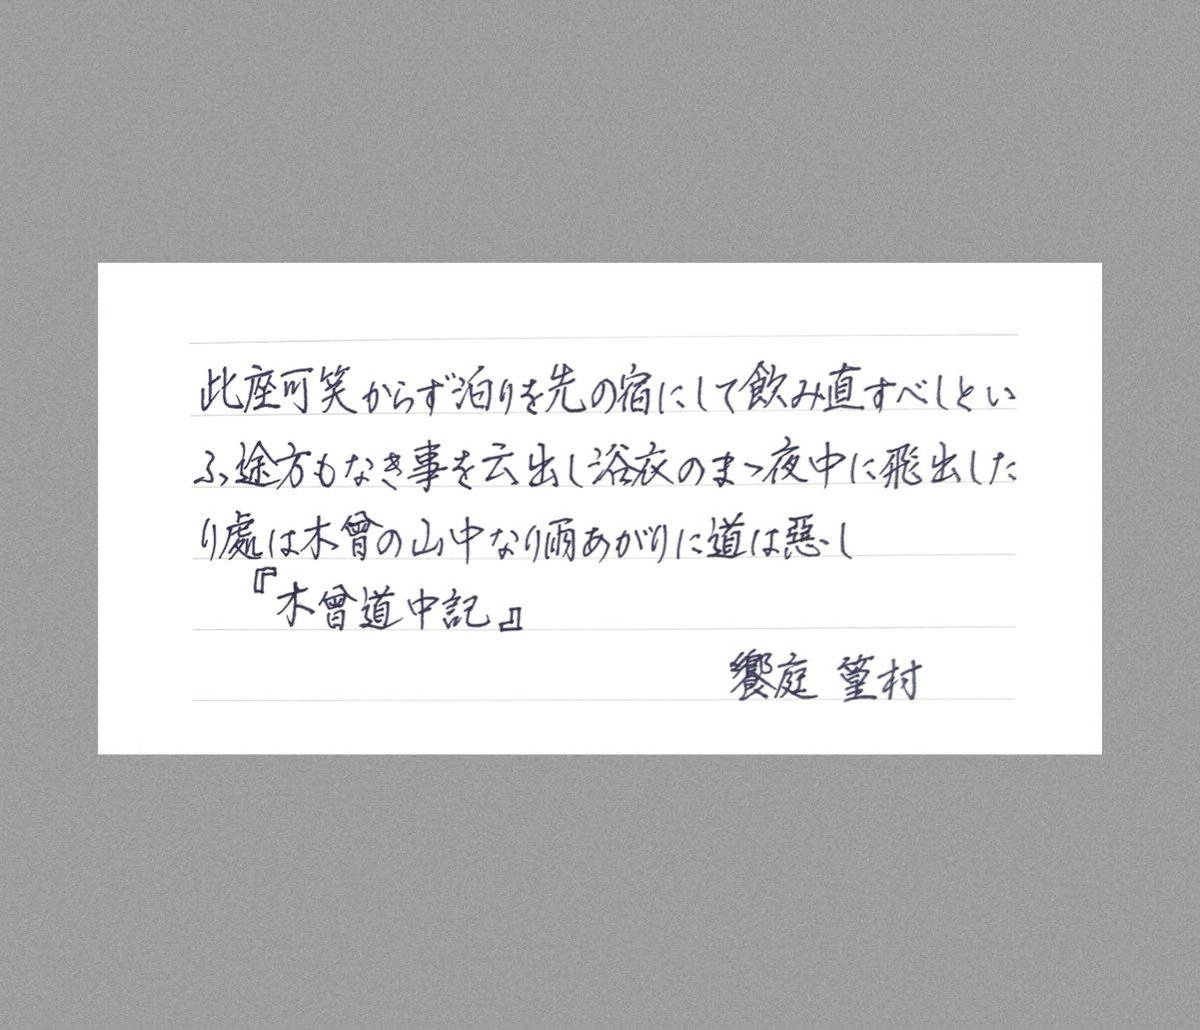 此座可笑からず泊りを先の宿にして飲み直すべしとい
ふ途方もなき事を云出し浴衣のまゝ夜中に飛出した
り處は木曾の山中なり雨あがりに道は惡し
『木曾道中記』
饗庭 篁村